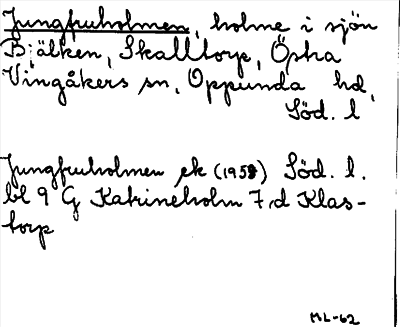 Jungfruholmen, holme i sjön
Bjälken, Skalltorp, Östra
Vingåkers sn, Oppunda hd,
Söd. l
Jungfruholmen ek (1958) Söd. l.
bl 9 G Katrineholm 7,d Klas-
torp
ML-62